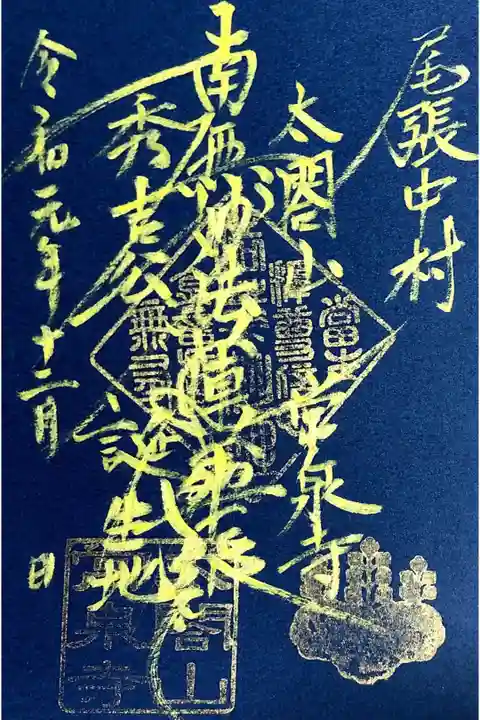 尾張中村
太閤山常泉寺
南無妙法蓮華経
秀吉公誕生地
令和元年十二月 日
太閤山
常泉寺